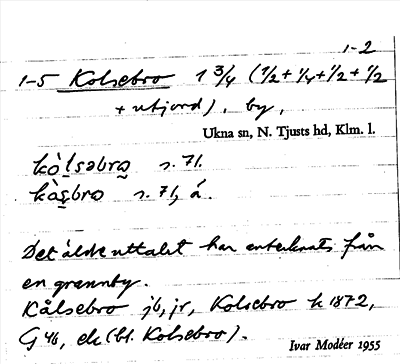 1-2
1-5 Kolsebro 1 3/4 (1/2 + 1/4 + 1/2 + 1/2
+ utjord). by.
Ukna sn, N. Tjusts hd, Klm. l.
kò̀lsəbrω s. 71.
kòsbrω s. 71, á.
Det äldre uttalet har antecknats från
en grannby.
Kålsebro jb, jr, Kolsebro k 1872,
G 46, ek (bl. Kolsebro).
Ivar Modéer 1955